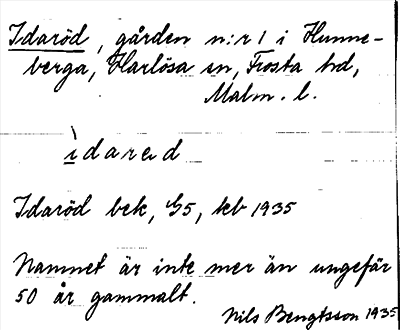 Idaröd, gården n:r 1 i Hunne-
berga, Harlösa sn, Frosta hd,
Malm. l.
ìdarəd
Idaröd bek, GS, kb 1935
Namnet är inte mer än ungefär
50 år gammalt.
Nils Bengtsson 1935